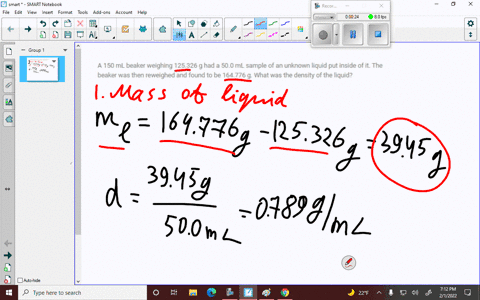 smart * - SMART Notebook
File Edit View Insert Format Tools Add-ons Help
Group 1
A 150 mL beaker weighing 125.326 g had a 50.0 mL sample of an unknown liquid put inside of it. The
beaker was then reweighed and found to be 164.776 g. What was the density of the liquid?
1. Mass of liquid
mℓ = 164.776g - 125.326g = 39.45g
d = 39.45g / 50.0mL = 0.789g/mL
Auto-hide
Type here to search
22°F
7:12 PM
2/1/2022